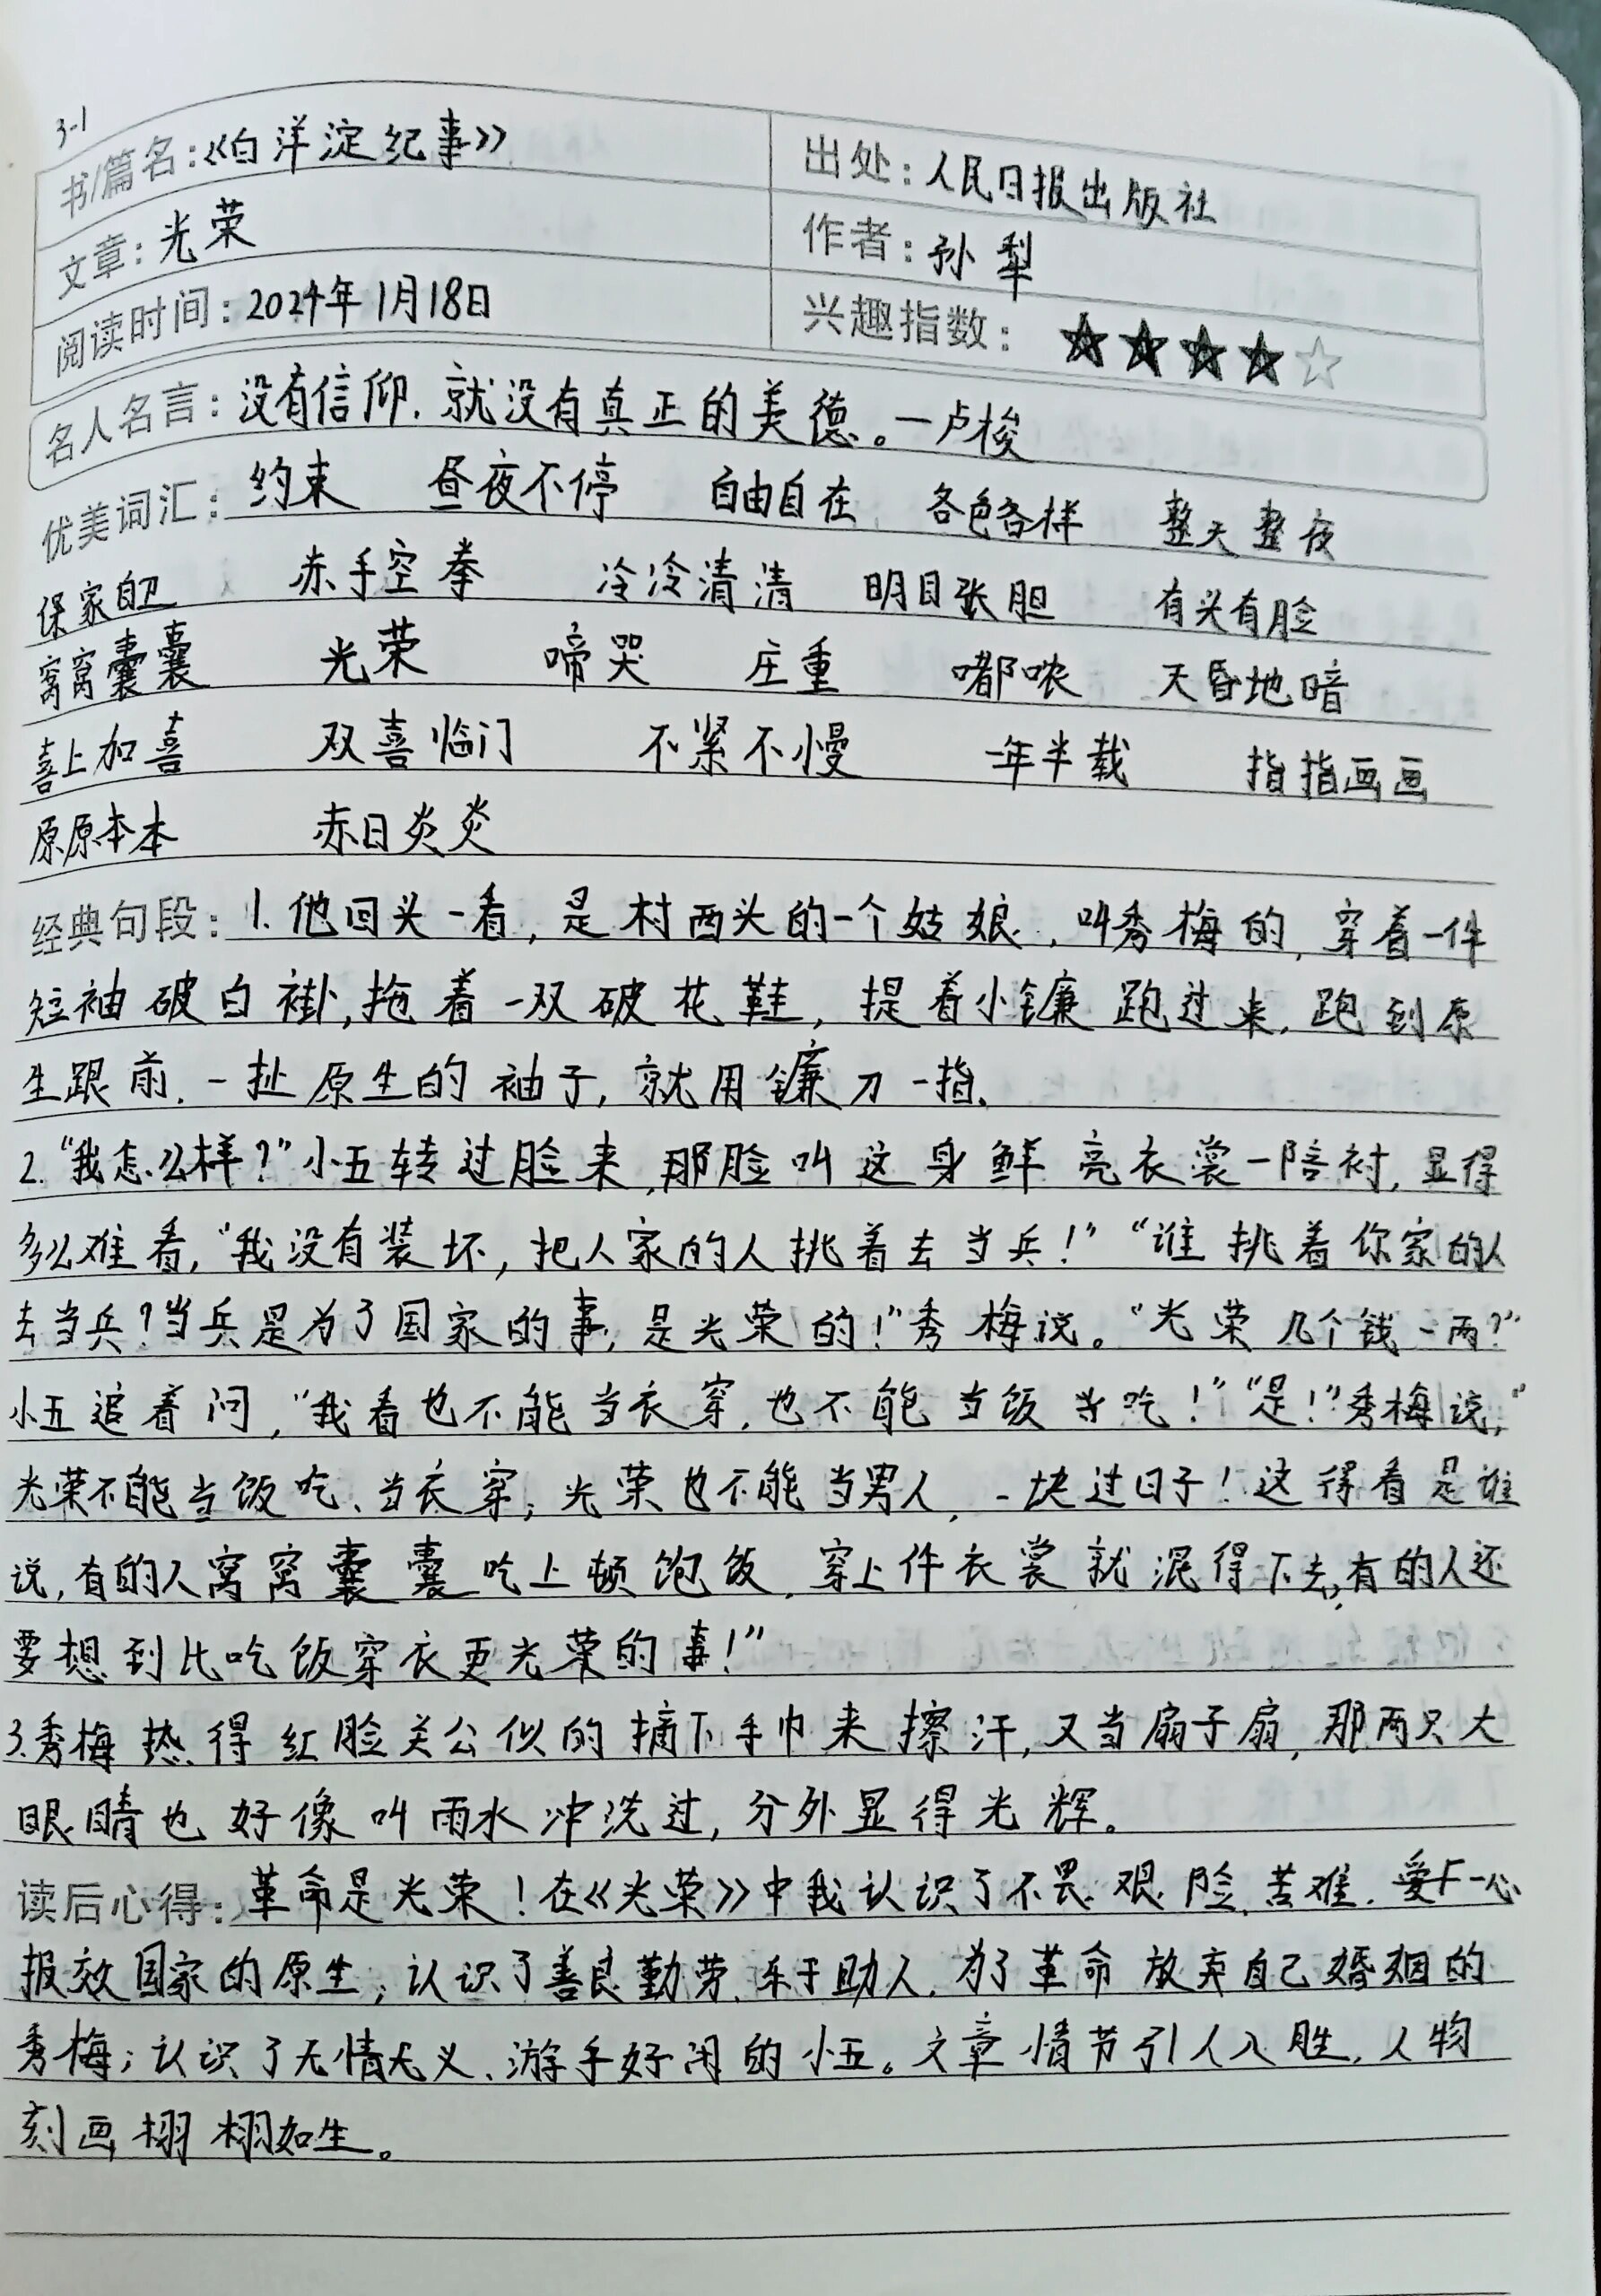 3-1
书/篇名:《白洋淀纪事》
出处:人民日报出版社
文章:光荣
作者:孙犁
阅读时间:2024年1月18日
兴趣指数:
名人名言:没有信仰,就没有真正的美德。—卢梭
优美词汇:约束 昼夜不停 自由自在 各色各样 整天整夜
保家自卫 赤手空拳 冷冷清清 明目张胆 有头有脸
窝窝囊囊 光荣 啼哭 庄重 嘟哝 天昏地暗
喜上加喜 双喜临门 不紧不慢 一年半载 指指画画
原原本本 赤日炎炎
经典句段:1.他回头一看,是村西头的一个姑娘,叫秀梅的,穿着一件
短袖破白褂,拖着一双破花鞋,提着小镰跑过来,跑到原
生跟前,一扯原生的袖子,就用镰刀一指、
2.“我怎么样?”小五转过脸来,那脸叫这身鲜亮衣裳一陪衬,显得
多么难看,“我没有装坏,把人家的人挑着去当兵!”“谁挑着你家的人
去当兵?当兵是为了国家的事,是光荣的!”秀梅说。“光荣几个钱一两?”
小五追着问,“我看也不能当衣穿,也不能当饭吃!”“是!”秀梅说,“
光荣不能当饭吃、当衣穿;光荣也不能当男人,一块过日子!这得看是谁
说,有的人窝窝囊囊吃上顿饱饭,穿上件衣裳就混得下去,有的人还
要想到比吃饭穿衣更光荣的事!”
3.秀梅热得红脸关公似的摘下手巾来擦汗,又当扇子扇,那两只大
眼睛也好像叫雨水冲洗过,分外显得光辉。
读后心得:革命是光荣!在《光荣》中我认识了不畏艰险、苦难,一心
报效国家的原生;认识了善良勤劳、乐于助人,为了革命放弃自己婚姻的
秀梅;认识了无情无义、游手好闲的小五。文章情节引人入胜,人物
刻画栩栩如生。